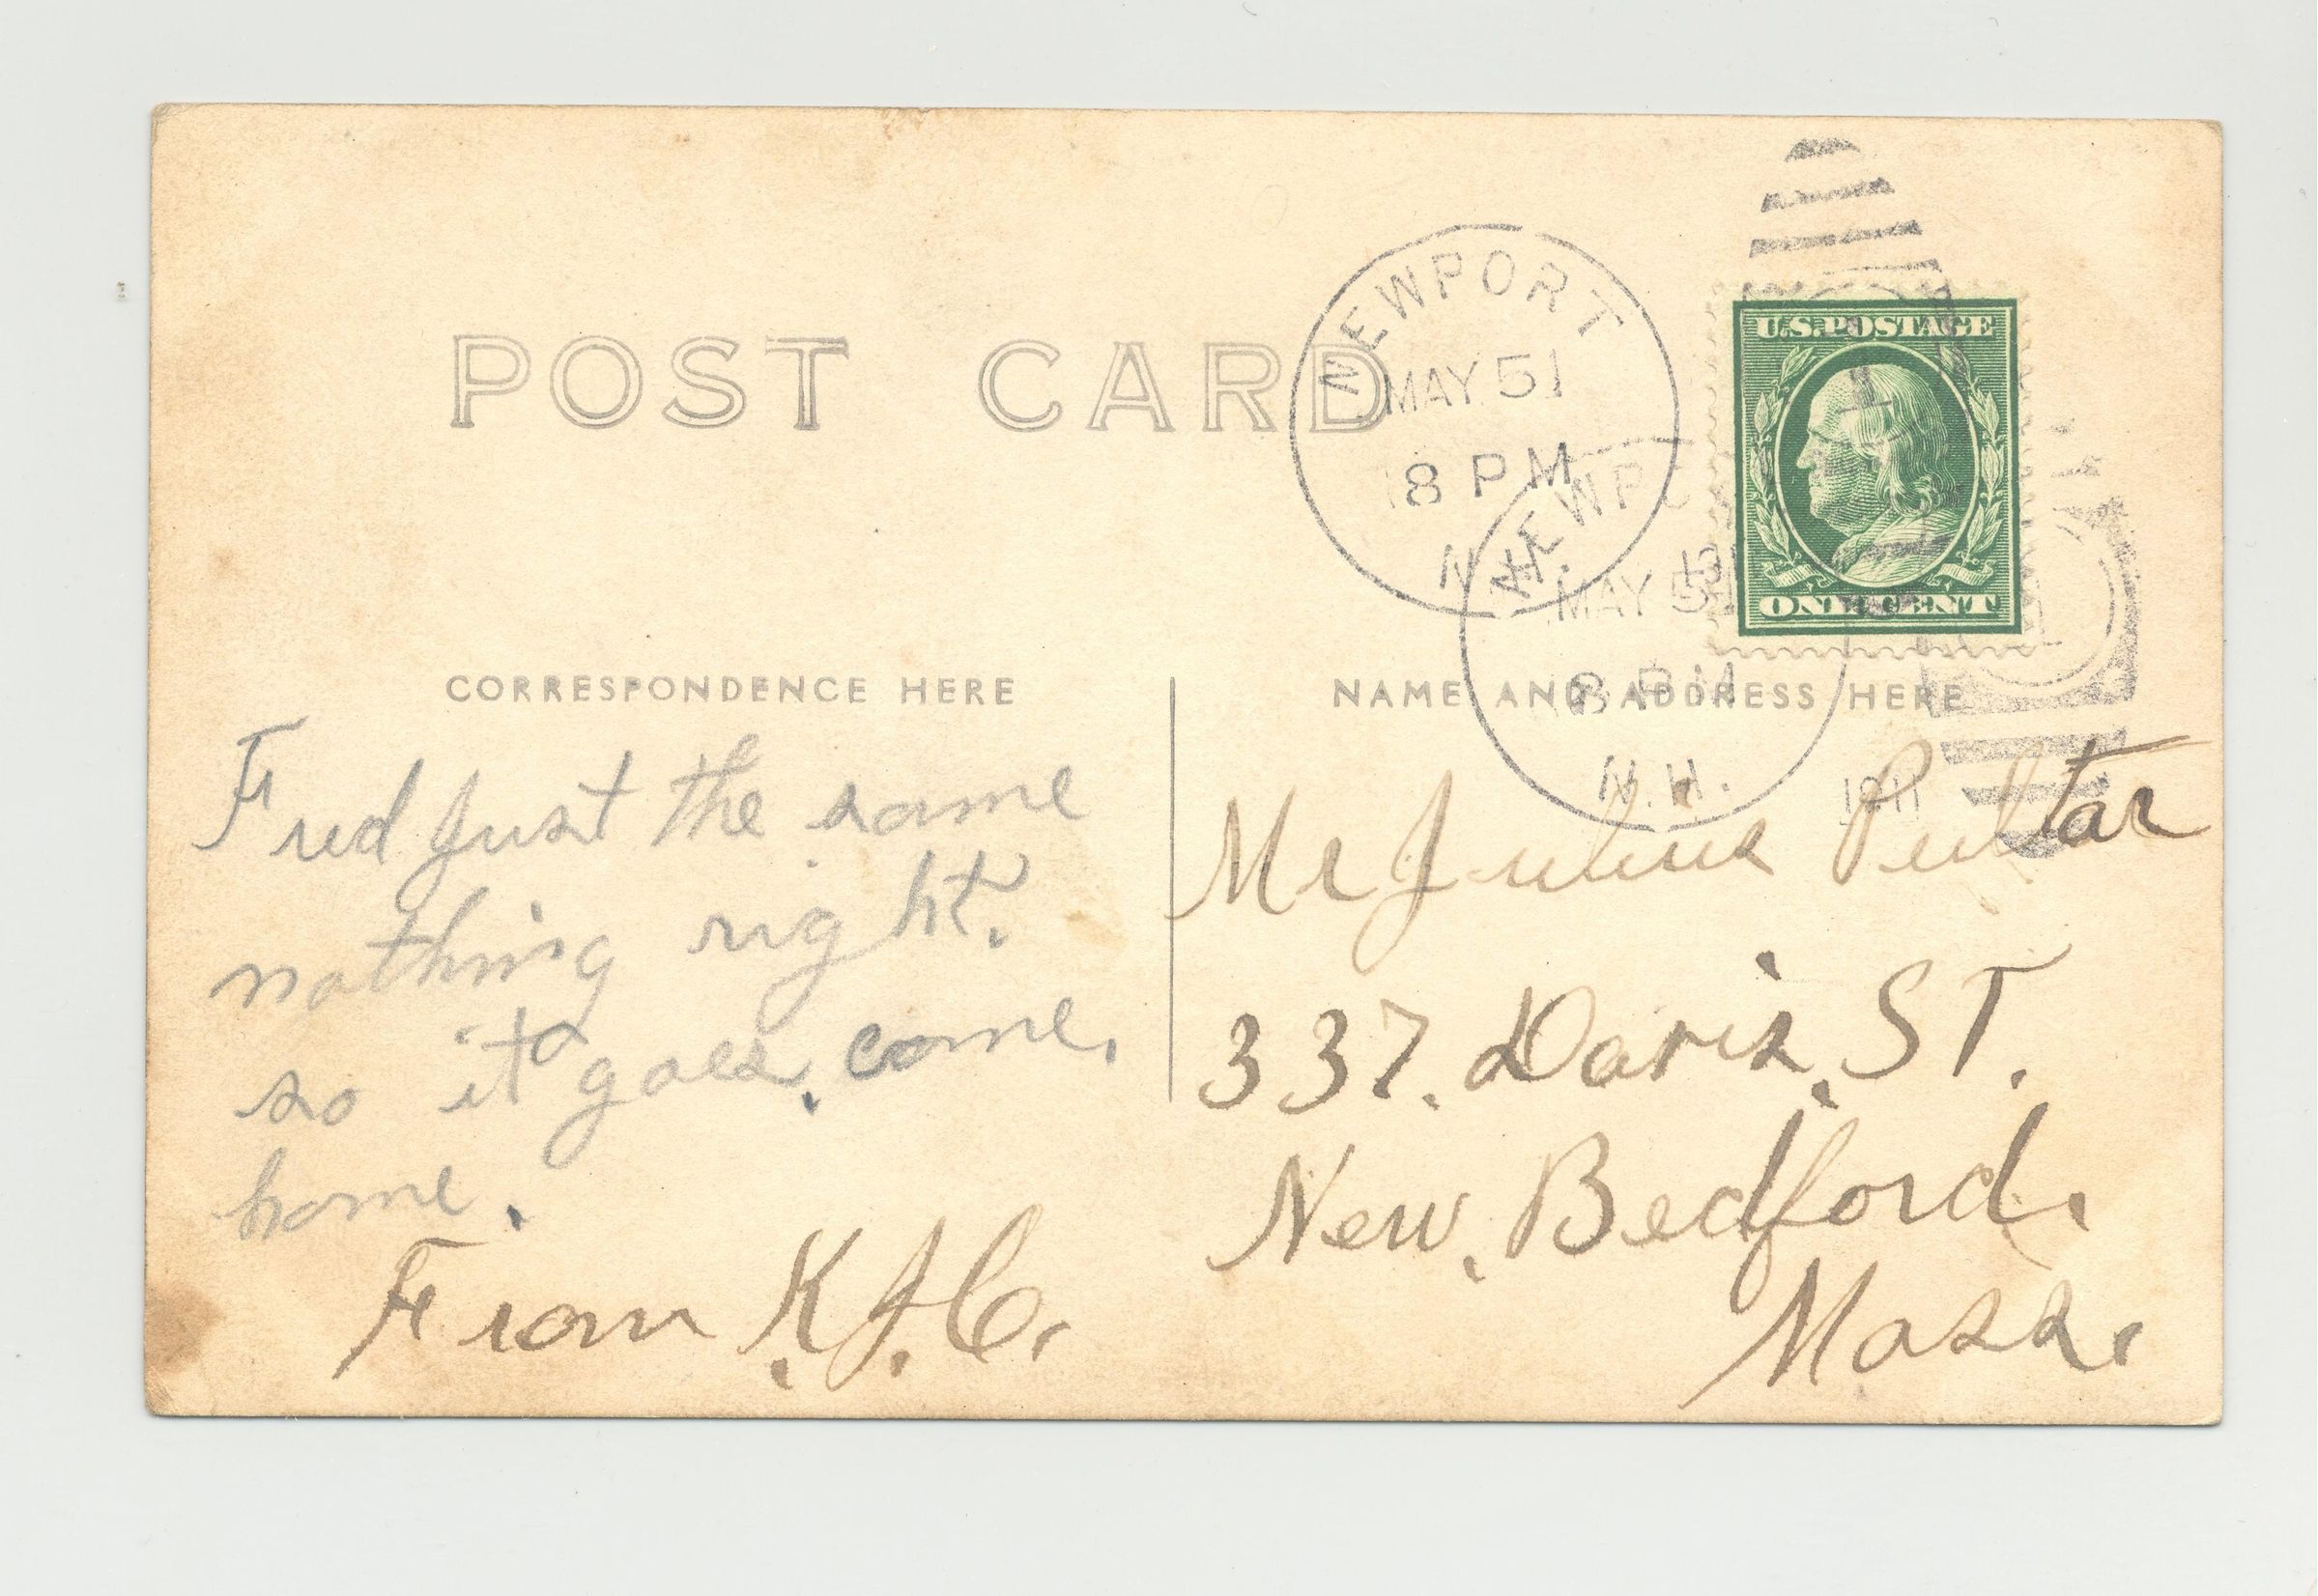 POST CARD
NEWPORT
MAY 51
8 PM
N.H.
NEWPO
MAY 5
8 PM
N.H.
1911
U.S. POSTAGE
1
ONE CENT
CORRESPONDENCE HERE
Fred Just the same
nothing right.
so it goes. come.
home.
From K.J.C.
NAME AND ADDRESS HERE
Mr Julius
337. Davis. ST.
New. Bedford.
Mass.